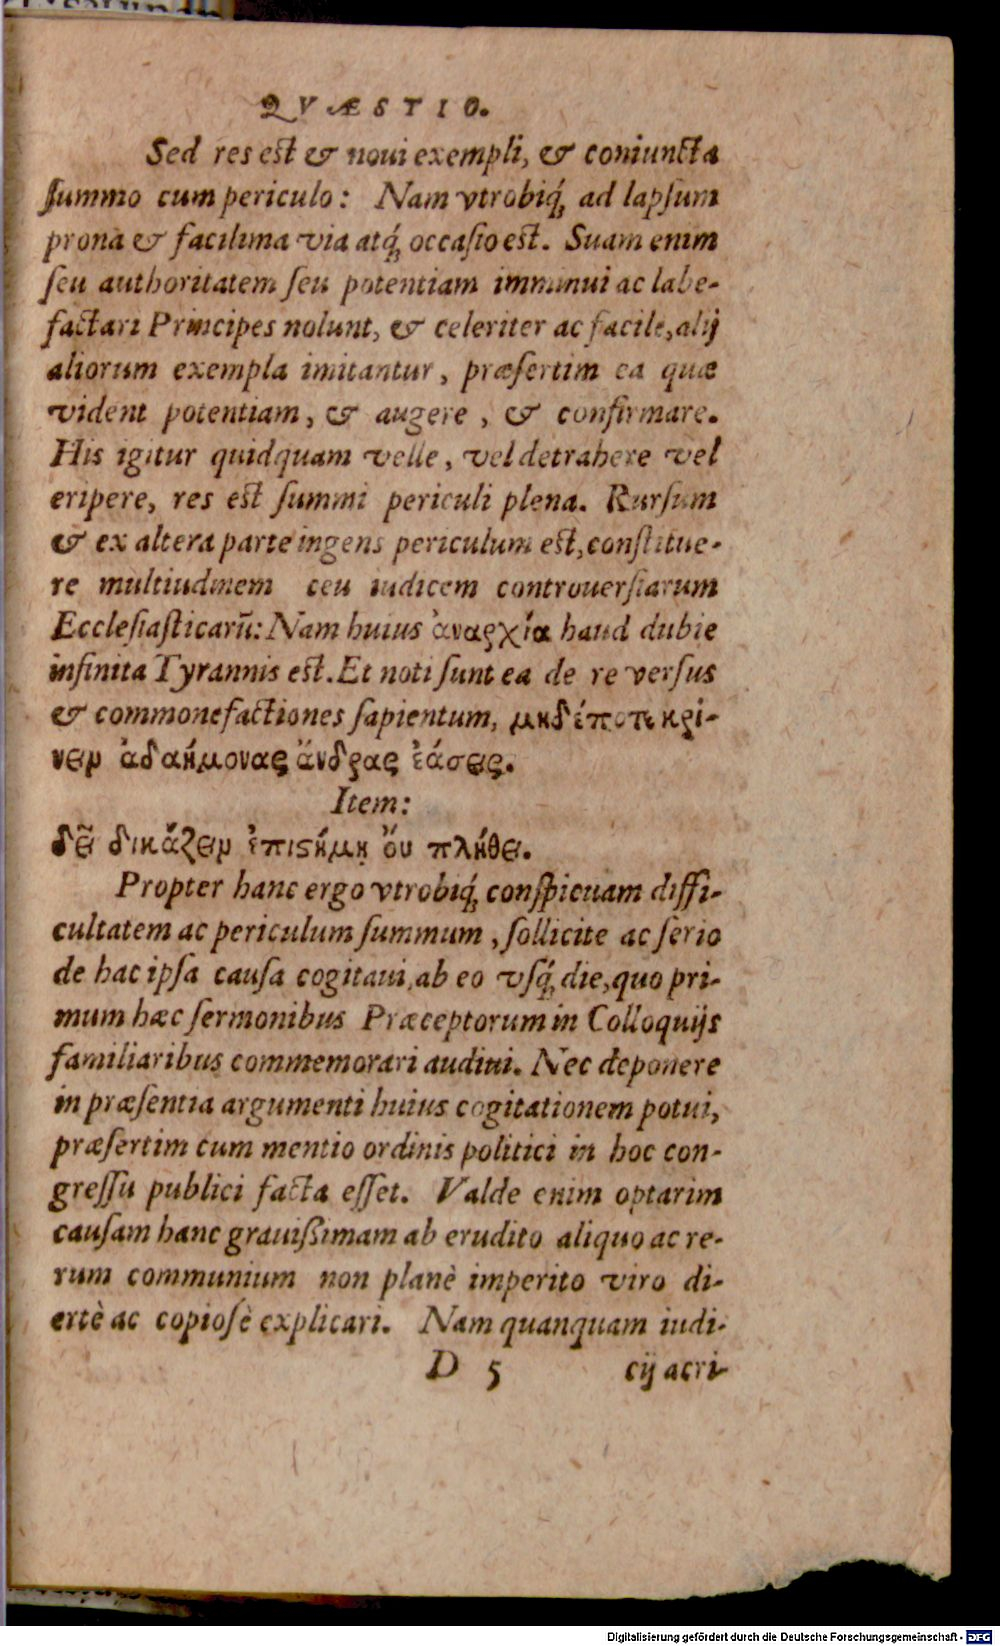 QVÆSTIO.
Sed res est & noui exempli, & coniuncta
ſummo cum periculo: Nam vtrobiq́ꝫ ad lapſum
prona & facilima via atq́ꝫ occaſio est. Suam enim
ſeu authoritatem ſeu potentiam imminui ac labe-
factari Principes nolunt, & celeriter ac facile, alij
aliorum exempla imitantur, præſertim ea quæ
vident potentiam, & augere, & confirmare.
His igitur quidquam velle, vel detrahere vel
eripere, res est ſummi periculi plena. Rurſum
& ex altera parte ingens periculum est, conſtitue-
re multiudinem ceu iudicem controuerſiarum
Eccleſiaſticarũ: Nam huius ἀναρχία haud dubie
infinita Tyrannis est. Et noti ſunt ea de re verſus
& commonefactiones ſapientum, μηδέποτε κρί-
νειν ἀδαήμονας ἄνδρας ἐάσεις.
Item:
δεῖ δικάζειν ἐπιϛήμῃ ὄυ πλήθει.
Propter hanc ergo vtrobiq́ꝫ conſpicuam diffi-
cultatem ac periculum ſummum, ſollicite ac ſerio
de hac ipſa cauſa cogitaui, ab eo vſq́ꝫ die, quo pri-
mum hæc ſermonibus Præceptorum in Colloquijs
familiaribus commemorari audiui. Nec deponere
in præſentia argumenti huius cogitationem potui,
præſertim cum mentio ordinis politici in hoc con-
greſſu publici facta eſſet. Valde enim optarim
cauſam hanc grauißimam ab erudito aliquo ac re-
rum communium non planè imperito viro di-
ertè ac copioſè explicari. Nam quanquam iudi-
D 5 cij acri-
Digitalisierung gefördert durch die Deutsche Forschungsgemeinschaft - DFG